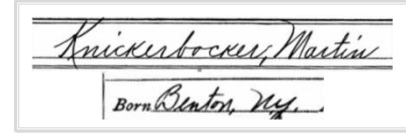 Knickerbocker, Martin
Born Benton, Ny.